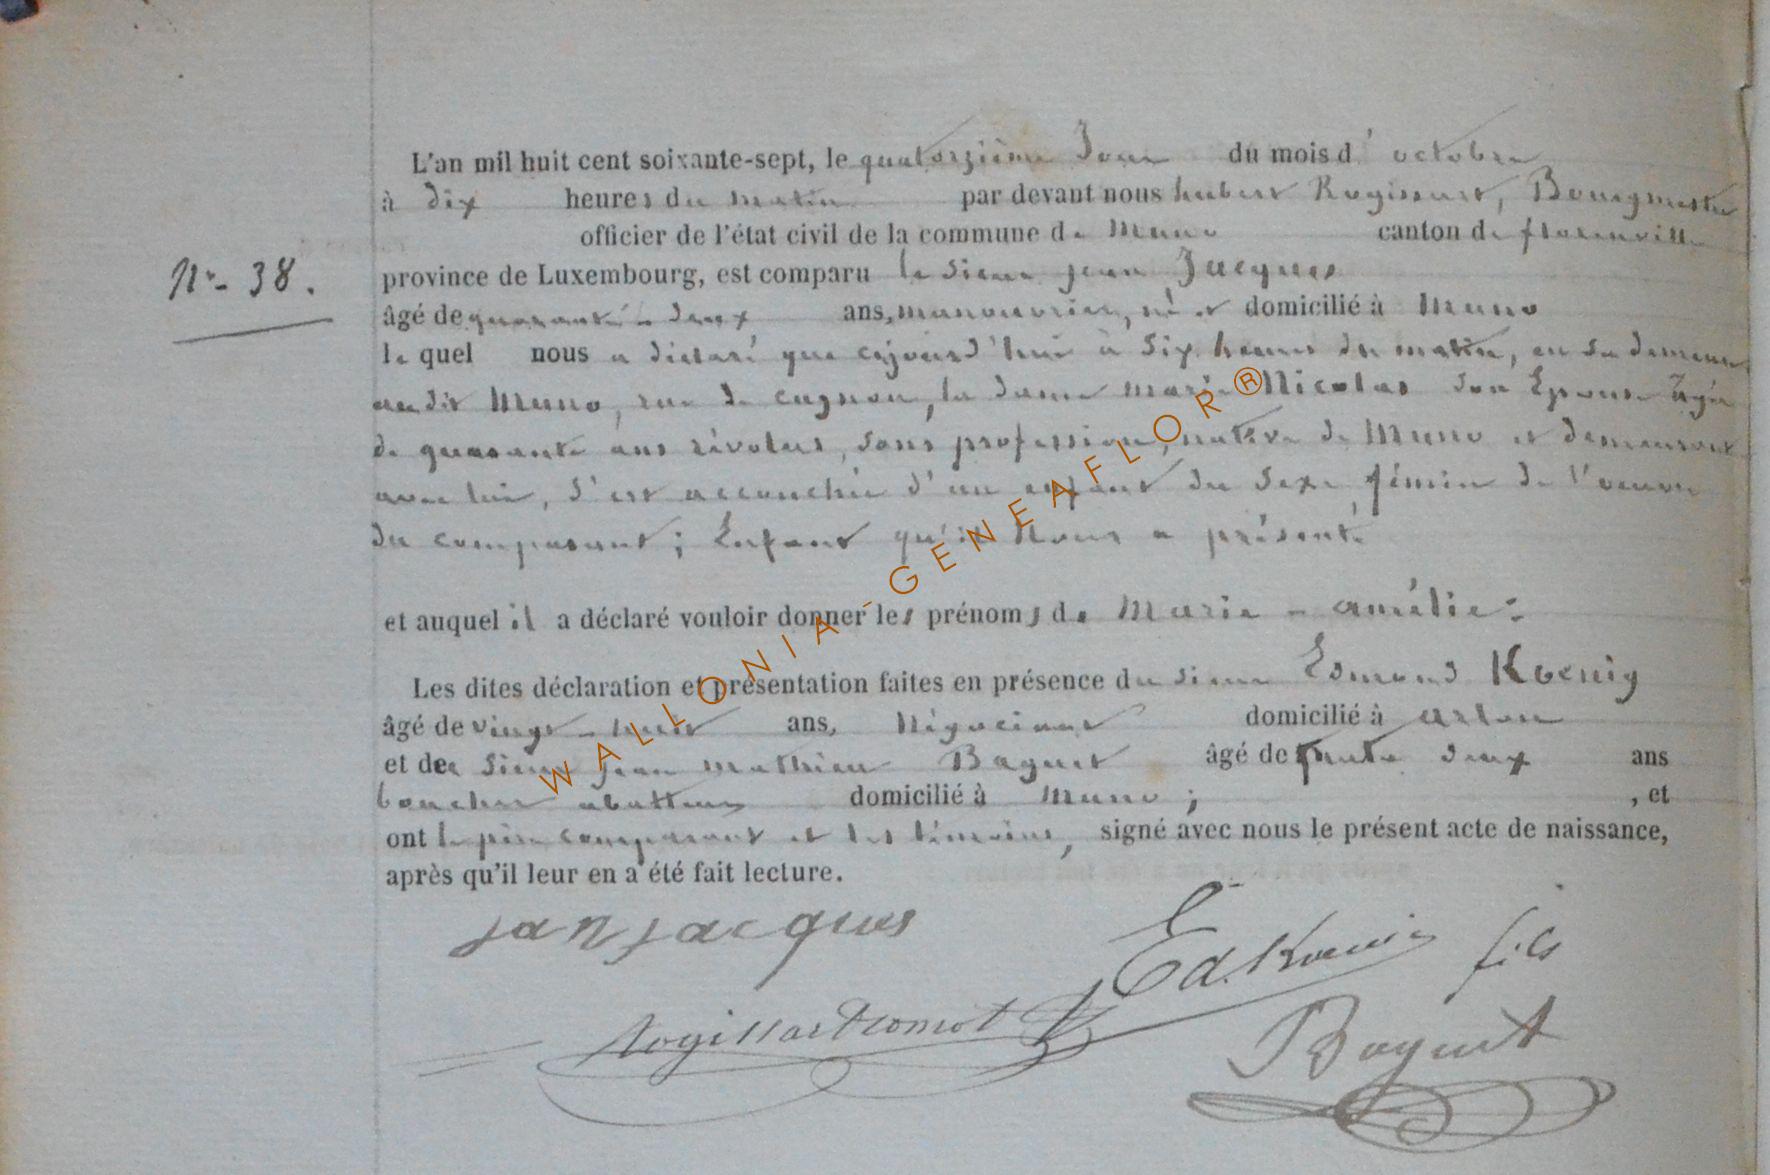 L'an mil huit cent soixante-sept, le quatorzième Jour du mois d'octobre
à dix heures du matin par devant nous hubert Rogissart, Bourgmestre
officier de l'état civil de la commune de Muno canton de florenville
N° 38.
province de Luxembourg, est comparu le Sieur jean Jacques
âgé de quarante-deux ans, manouvrier, né et domicilié à Muno
lequel nous a déclaré que cejourd'hui à Six heures du matin, en sa demeure
audit Muno, rue de cugnon, la dame marie Nicolas son Epouse agée
de quarante ans révolus, sans profession, native de Muno et demeurant
avec lui, s'est accouchée d'un enfant du Sexe féminin de l'oeuvre
du comparant; Enfant qu'il Nous a présenté
et auquel il a déclaré vouloir donner les prénoms de Marie-amélie:
Les dites déclaration et présentation faites en présence du sieur Edmond Koenig
âgé de vingt-huit ans, Négociant domicilié à arlon
et de Sieur jean mathieu Baguet âgé de trente deux ans
boucher abatteur domicilié à Muno; , et
ont le père comparant et les témoins, signé avec nous le présent acte de naissance,
après qu'il leur en a été fait lecture.
jan jacques
Ed. Koenig fils
Baguet
WALLONIA-GENEAFLOR®